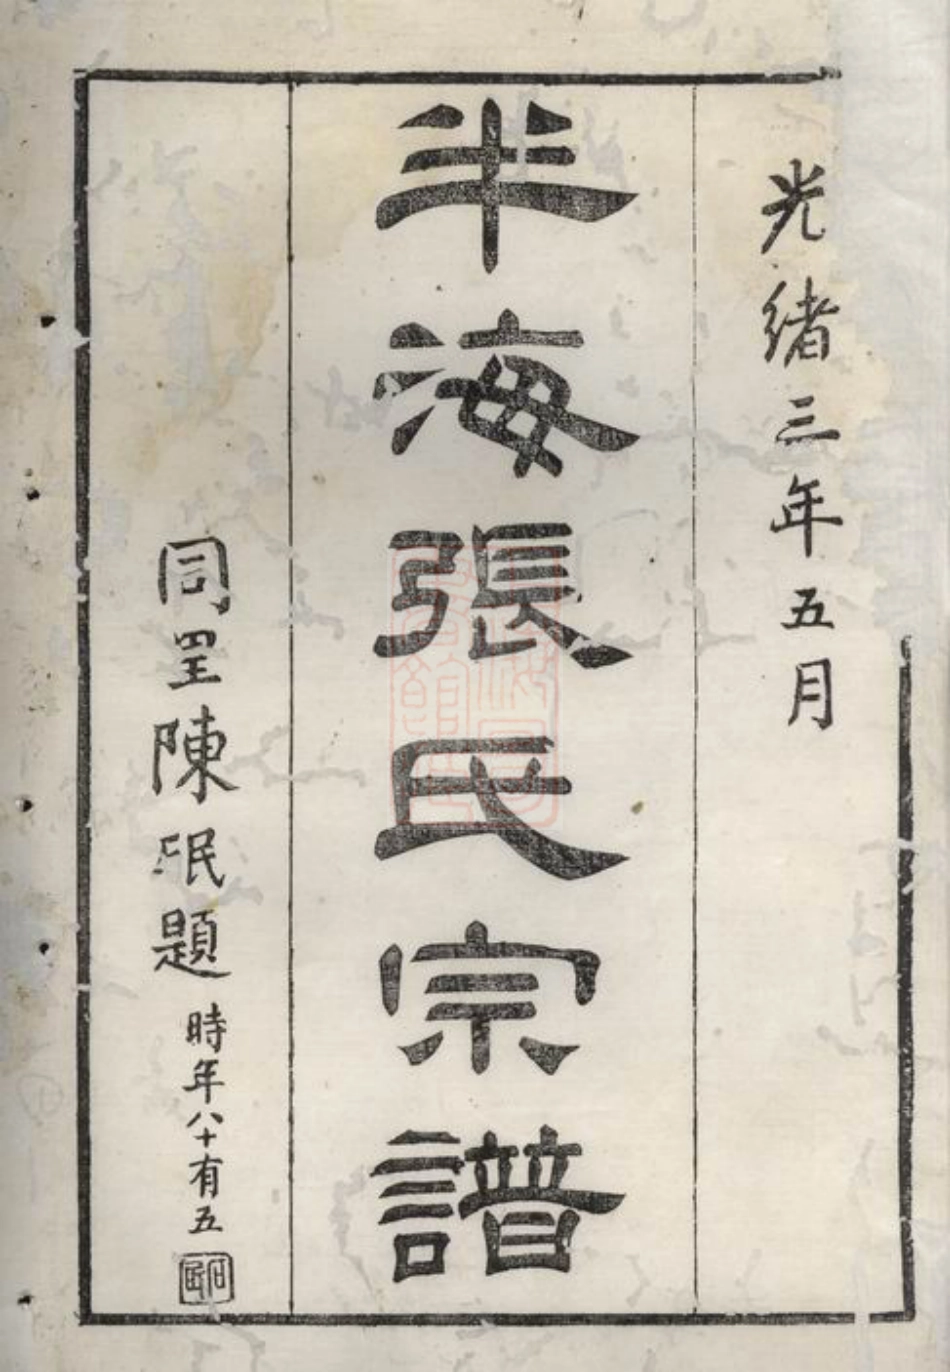 光緒三年五月
半海張氏宗譜
同里陳題 時年八十有五